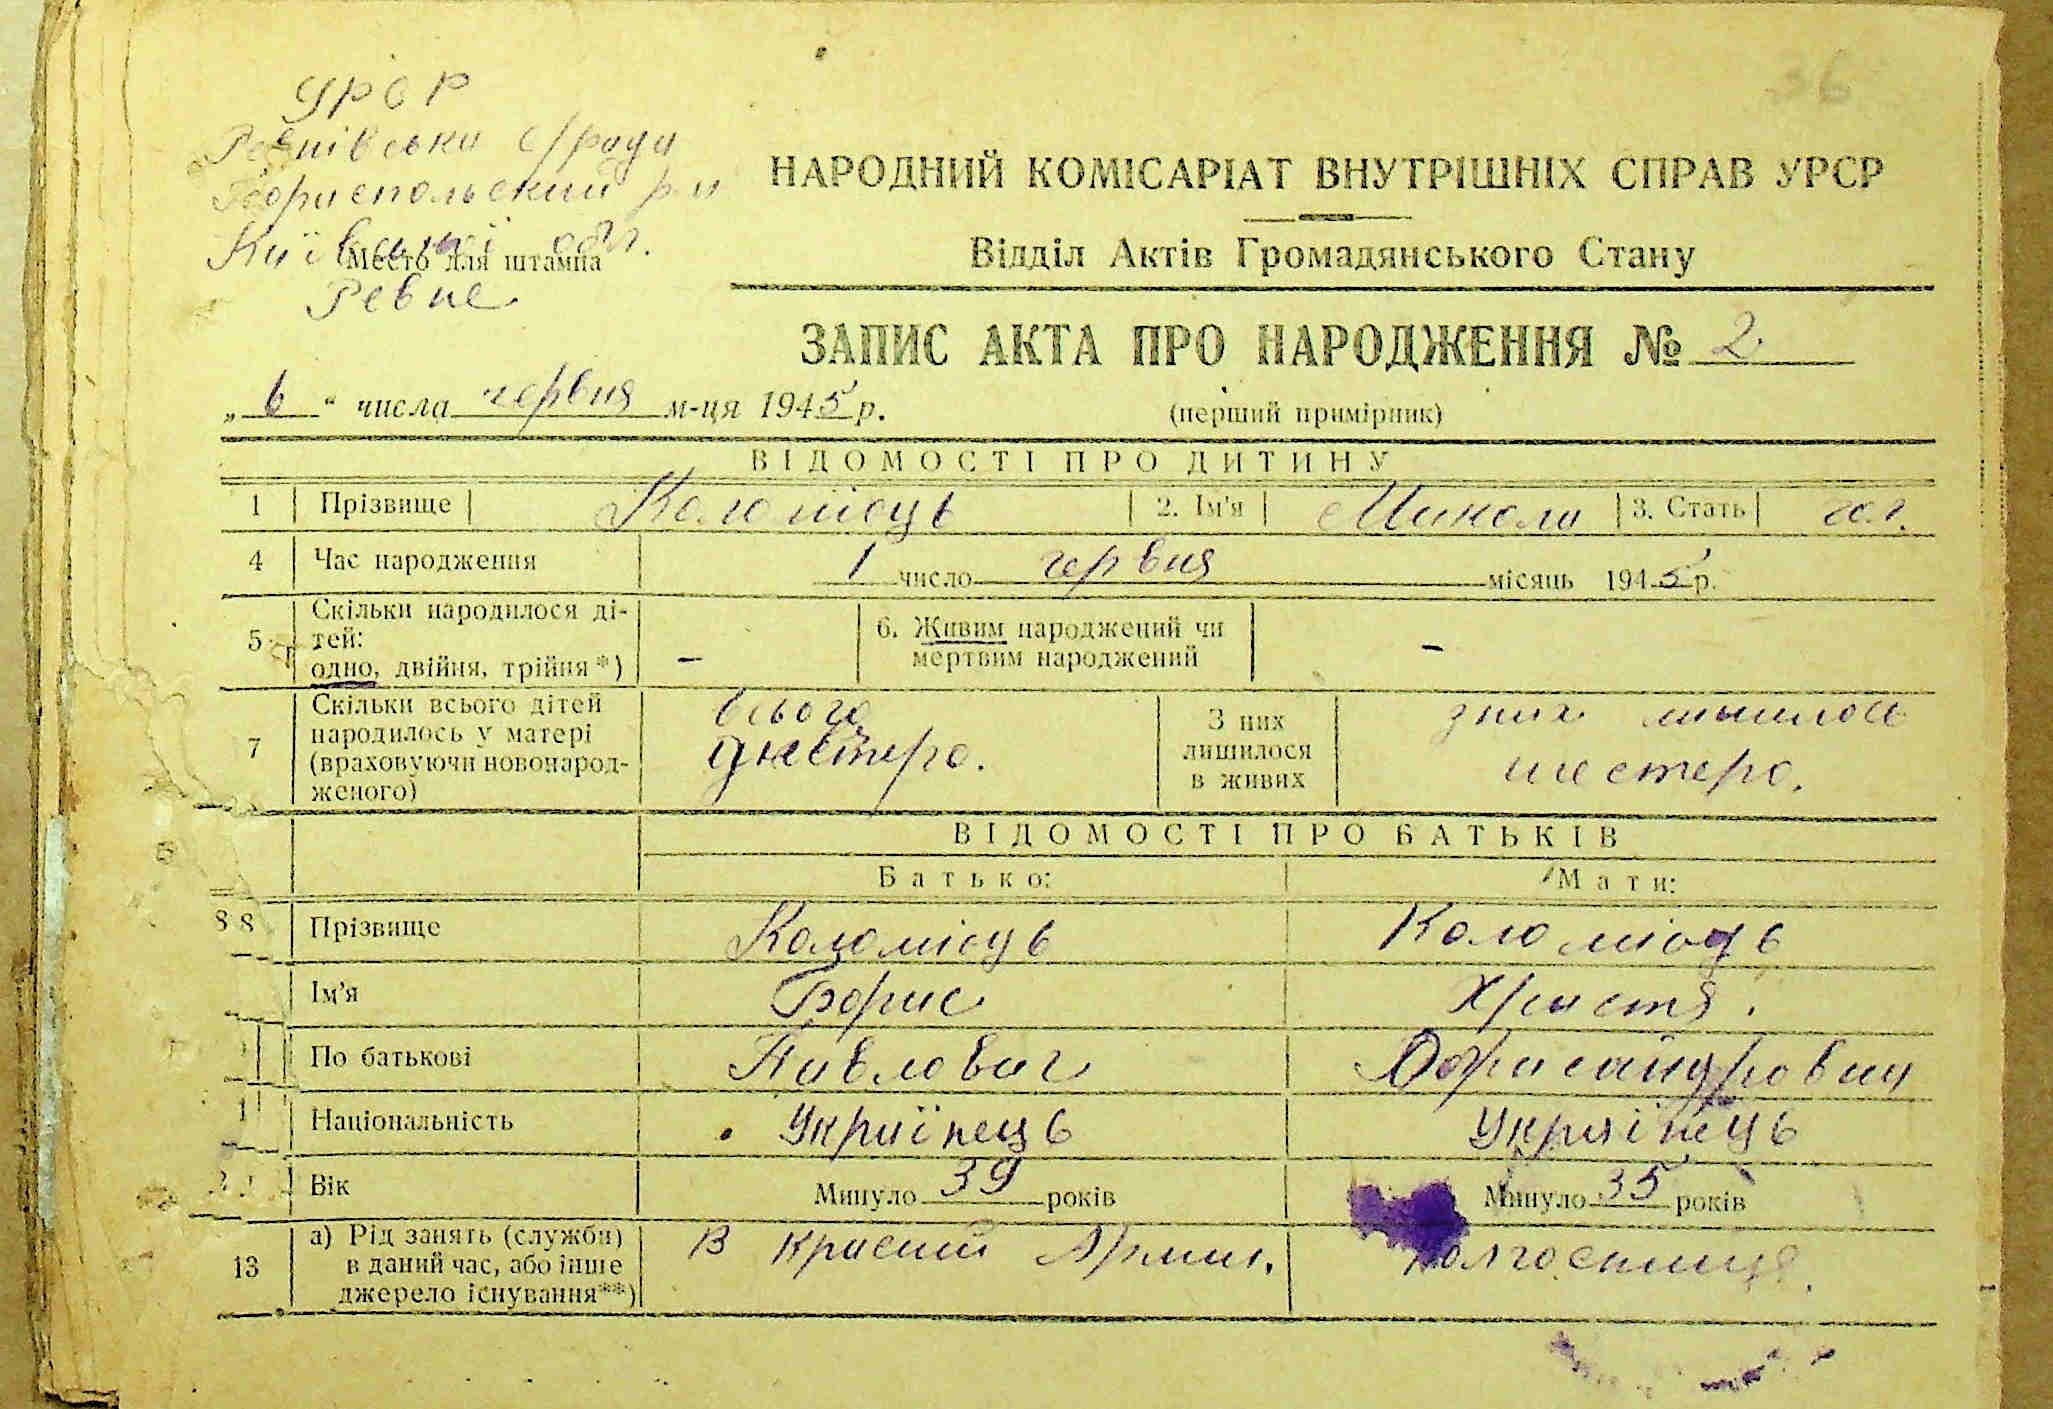 36
УРСР
Ревнівська с/рада
Бориспольский р-н
Київської обл.
Место для штампа
Ревне
НАРОДНИЙ КОМІСАРІАТ ВНУТРІШНІХ СПРАВ УРСР
Відділ Актів Громадянського Стану
ЗАПИС АКТА ПРО НАРОДЖЕННЯ № 2
„ 6 “ числа червня м-ця 1945 р.
(перший примірник)
ВІДОМОСТІ ПРО ДИТИНУ
1 Прізвище Коломієць 2. Ім'я Микола 3. Стать чол.
4 Час народження 1 число червня місяць 1945 р.
5 Скільки народилося ді-
тей:
одно, двійня, трійня*) –
6. Живим народжений чи
мертвим народжений –
7 Скільки всього дітей
народилось у матері
(враховуючи новонарод-
женого)
всього
З них
лишилося
в живих
з них лишилось
шестеро.
ВІДОМОСТІ ПРО БАТЬКІВ
Батько: Мати:
8 8 Прізвище Коломієць Коломієць
Ім'я Борис Христя.
По батькові Павлович
Національність Українець Українець
Вік Минуло 39 років Минуло 35 років
13 а) Рід занять (служби)
в даний час, або інше
джерело існування**)
В Красній Армии. Колгоспниця.